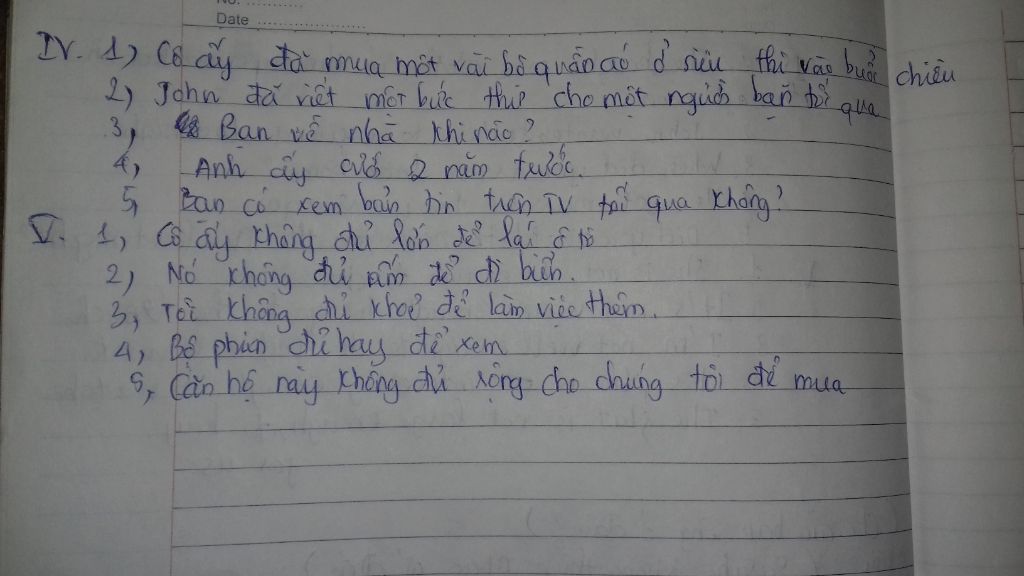 No. ..........
Date ..................
IV. 1, Cô ấy đã mua một vài bộ quần áo ở siêu thị vào buổi chiều
2, John đã viết một bức thư cho một người bạn tối qua
3, Bạn về nhà khi nào?
4, Anh ấy cưới 2 năm trước.
5, Bạn có xem bản tin trên TV tối qua không?
V. 1, Cô ấy không đủ lớn để lái ô tô
2, Nó không đủ ấm để đi biển.
3, Tôi không đủ khoẻ để làm việc thêm.
4, Bộ phim đủ hay để xem
5, Căn hộ này không đủ rộng cho chúng tôi để mua